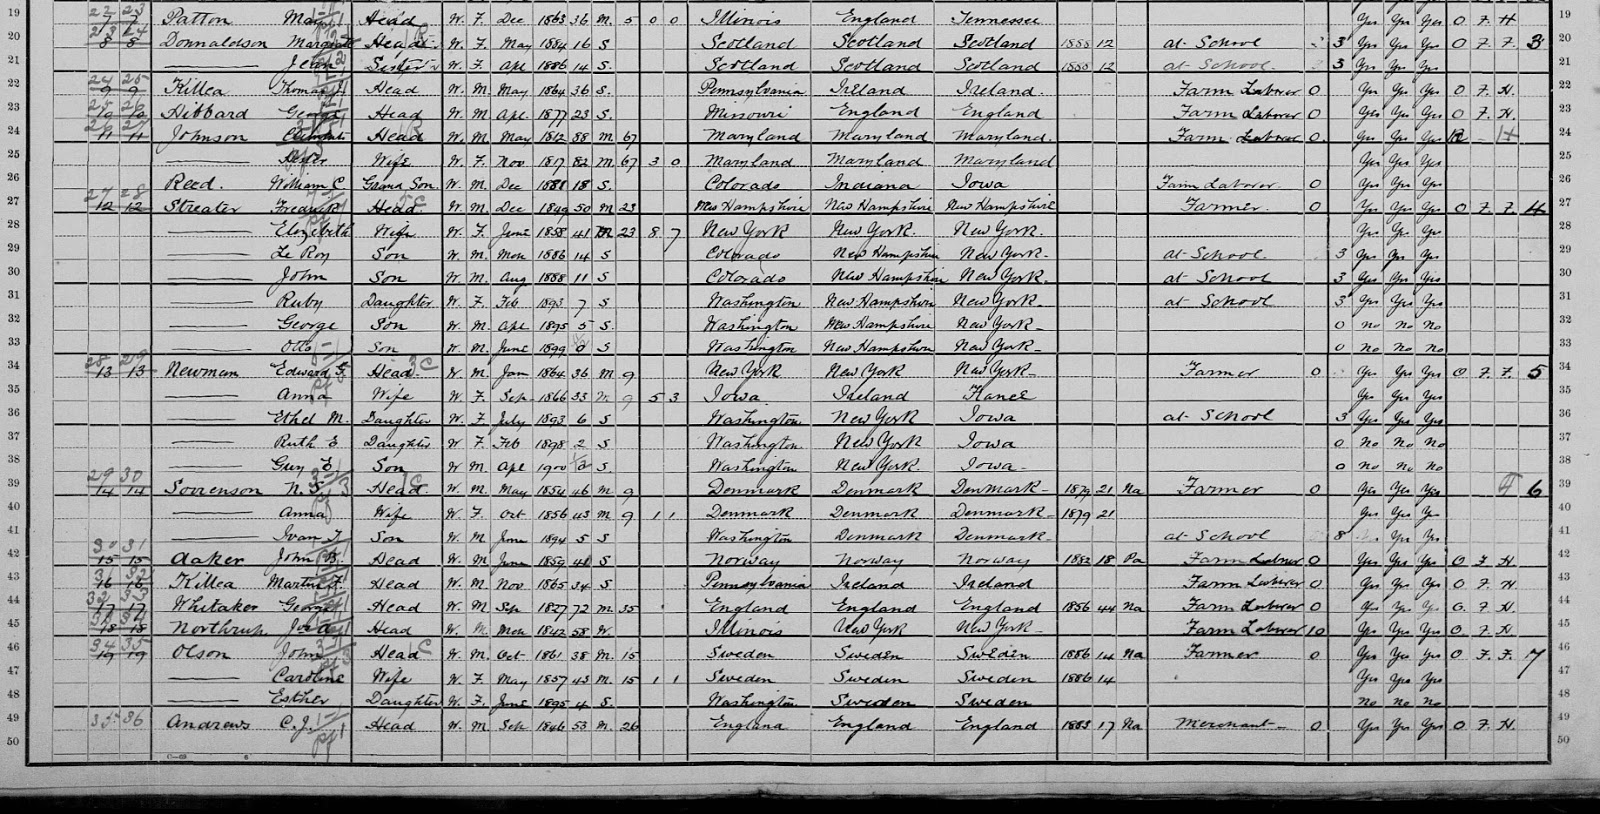 19 7 7 Patton May Head W. F. Dec 1863 36 M. 5 0 0 Illinois England Tennessee Yes Yes Yes O F H 19
20 8 8 Donnaldson Head W. F. May 1884 16 S Scotland Scotland Scotland 1888 12 at School 3 Yes Yes Yes O F. F. 3 20
21 Jean Sister W. F. Apr 1886 14 S. Scotland Scotland Scotland 1888 12 at School. 3 Yes Yes Yes 21
22 9 9 Killea Thomas Head W. M. May 1864 36 S. Pennsylvania Ireland Ireland. Farm Laborer 0 Yes Yes Yes O F. H. 22
23 10 10 Hibbard George Head W. M Apr. 1877 23 S. Missouri England England Farm Laborer 0 Yes Yes Yes O F. H. 23
24 11 11 Johnson Head W. M. May 1842 58 M 67 Maryland Maryland Maryland. Farm Laborer 0 Yes Yes Yes R H 24
25 Hester Wife W. F. Nov 1817 82 M. 67 3 0 Maryland Maryland Maryland Yes Yes Yes 25
26 Reed. William C. Grand Son. W. M. Dec 1881 18 S. Colorado Indiana Iowa Farm Laborer. 0 Yes Yes Yes 26
27 12 12 Streater Fredrick Head. W. M. Dec 1849 50 M 23 New Hampshire New Hampshire New Hampshire Farmer. 0 Yes Yes Yes O F. F. 4 27
28 Elizabeth Wife W. F. June 1858 41 M 23 8 7 New York New York. New York. Yes Yes Yes 28
29 Le Roy Son W. M. Mch 1886 14 S Colorado New Hampshire New York. at School. 3 Yes Yes Yes 29
30 John Son W. M. Aug 1888 11 S Colorado New Hampshire New York. at School 3 Yes Yes Yes 30
31 Ruby Daughter W. F. Feb 1893 7 S Washington New Hampshire New York. at School 3 Yes Yes Yes 31
32 George Son W. M. Apr 1895 5 S. Washington New Hampshire New York 0 no No No 32
33 Otto Son W. M. June 1899 0 S Washington New Hampshire New York 0 No No No 33
34 13 13 Newman Edward G. Head. W. M. Jan 1864 36 M 9 New York New York New York Farmer 0 Yes Yes Yes O F. F. 5 34
35 Anna Wife W. F. Sep 1866 33 M 9 5 3 Iowa Ireland Yes Yes Yes 35
36 Ethel M. Daughter W. F July 1893 6 S Washington New York Iowa at School 3 Yes Yes Yes 36
37 Ruth E Daughter W. F. Feb 1898 2 S Washington New York Iowa 0 No No No 37
38 Guy E Son W. M. Apr 1900 S. Washington New York. Iowa 0 No No No 38
39 14 14 Sorrenson N. Head. W. M. May 1854 46 M 9 Denmark Denmark Denmark 1879 21 Na Farmer 0 Yes Yes Yes 6 39
40 Anna Wife W. F. Oct 1856 43 M 9 1 1 Denmark Denmark Denmark 1879 21 Yes Yes Yes 40
41 Ivan Son W. M. June 1894 5 S Washington Denmark Denmark at School 8 Yes Yes 41
42 15 15 Aaker John B. Head W. M. June 1859 41 S Norway Norway Norway 1882 18 Pa Farm Laborer 0 Yes Yes Yes O F. H. 42
43 16 16 Killea Martin F. Head W. M. Nov. 1865 34 S Pennsylvania Ireland Ireland Farm Laborer 0 Yes Yes Yes O F. H. 43
44 17 17 Whitaker George Head W. M Sep 1827 72 M. 35 England England England 1856 44 Na Farm Laborer 0 Yes Yes Yes O. F. H. 44
45 18 18 Northrup Head W. M. Mch 1842 58 W. Illinois New York New York Farm Laborer 10 Yes Yes Yes O. F. H 45
46 19 19 Olson John Head W. M. Oct 1861 38 M. 15 Sweden Sweden Sweden 1886 14 Na Farmer 0 Yes Yes Yes O F. F. 7 46
47 Caroline Wife W. F. May 1857 43 M. 15 1 1 Sweden Sweden Sweden 1886 14 Yes Yes Yes 47
48 Esther Daughter W. F. June 1895 4 S. Washington Sweden Sweden No No No 48
49 35 36 Andrews C. J. Head W. M. Sep 1846 53 M. 26 England England England 1883 17 Na Merchant 0 Yes Yes Yes O F. H. 49
50 50